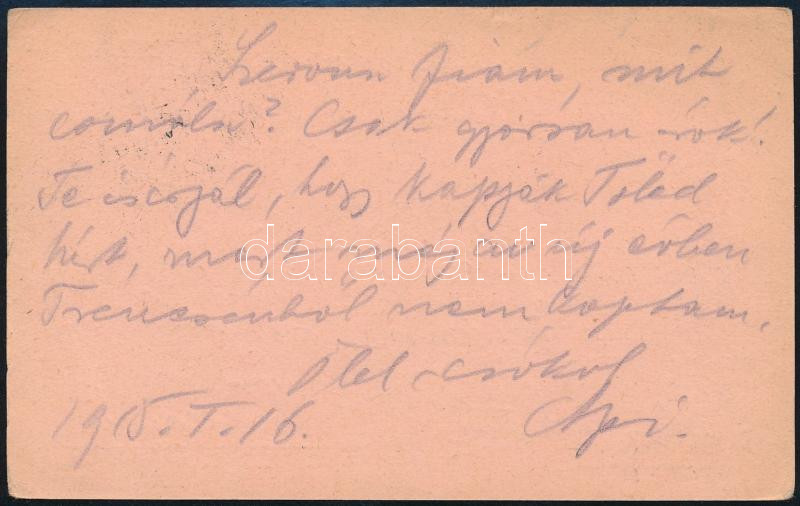 Szervusz fiám, mit
csinálsz? Csak gyorsan írok!
Te is írjál, hogy kapják Tőled
hírt, mert még az új évben
Trencsénből nem kaptam.
Ölel csókol
1915. I. 16. Api.
darabanth